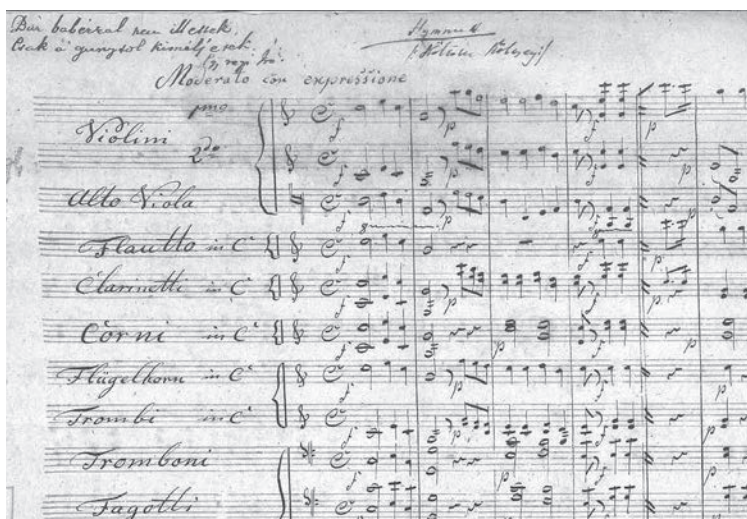 Bár babérral nem illetek,
Csak a gunytol kiméljetek!
Hymnus
Kölcsey
Moderato con expressione
pmo
Violini
2do
Alto Viola
Flautto in C
Clarinetti in C
Corni in C
Flügelhorn in C
Trombi in C
Tromboni
Fagotti